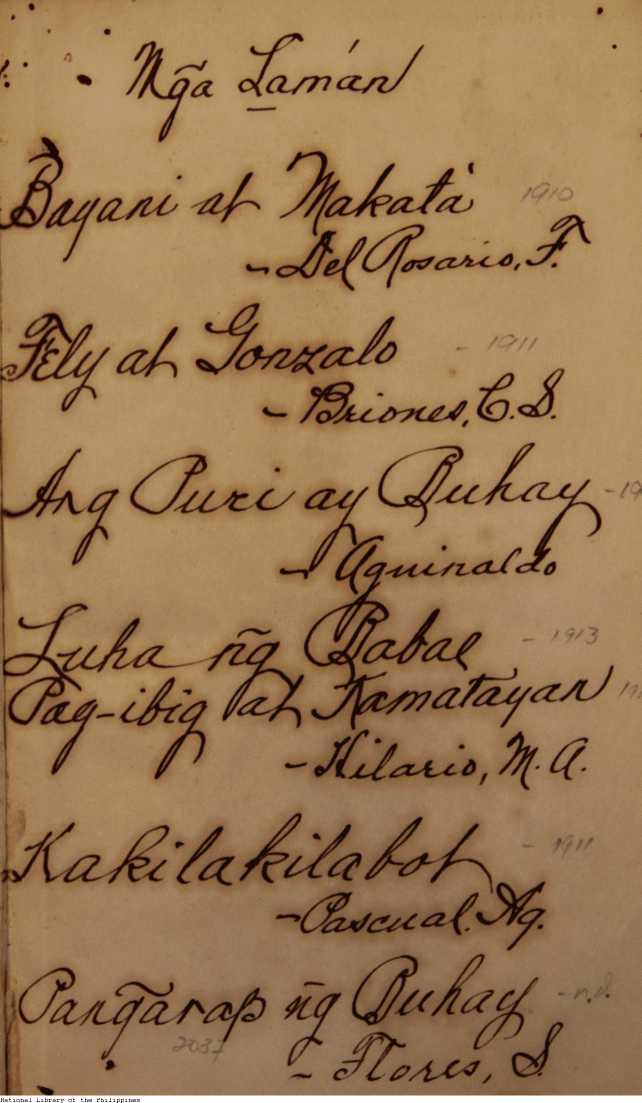 Mg̃a Lamán
Bayani at Makatà 1910
- Del Rosario, F.
Fely at Gonzalo - 1911
- Briones, C. S.
Ang Puri ay Buhay
- Aguinaldo
Luha ñg Babae - 1913
Pag-ibig at Kamatayan
- Hilario, M. A.
Kakilakilabot - 1911
- Pascual. Ag.
Pang̃arap ñg Buhay - n.d.
2037
- Flores, S.
National Library of the Philippines